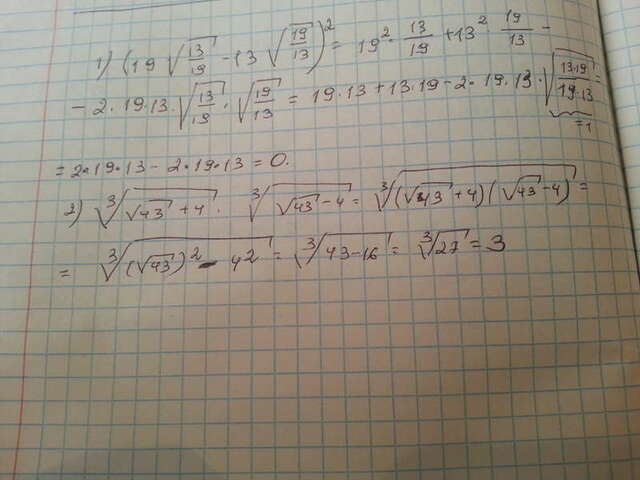 1) (19 √(13/19) - 13 √(19/13))² = 19² · 13/19 + 13² · 19/13 -
- 2 · 19 · 13 · √(13/19) · √(19/13) = 19 · 13 + 13 · 19 - 2 · 19 · 13 · √(13·19/19·13) =
= 1
= 2 · 19 · 13 - 2 · 19 · 13 = 0.
2) ∛(√43 + 4) · ∛(√43 - 4) = ∛((√43 + 4)(√43 - 4)) =
= ∛((√43)² - 4²) = ∛(43 - 16) = ∛27 = 3